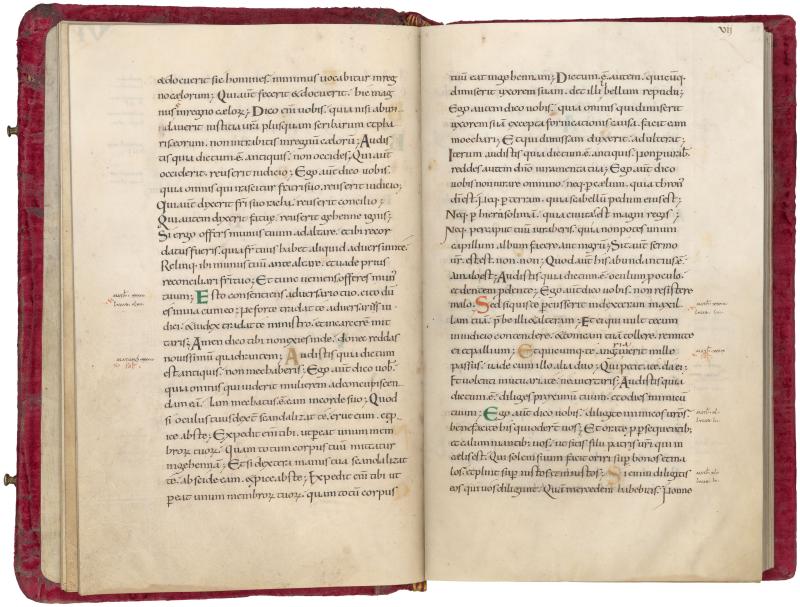 & docuerit sic homines. minimus uocabitur inreg
no cælorum; Qui aut̄ fecerit & docuerit. hic mag
nus inregno cælor̄; Dico eni uobis. quia nisi abun
dauerit iusticia ur̄a plusquam scribarum et pha
riseorum. non intrabitis inregnū cælorū; Audis
tis quia dictum ē. antiquis. non occides; Qui aut̄
occiderit. reus erit iudicio; Ego aut̄ dico uobis.
quia omnis qui irascitur fratri suo. reus erit iudicio;
Qui aut̄ dixerit fr̄i suo racha. reus erit concilio;
Qui autem dixerit fatue. reus erit gehenne ignis;
Si ergo offers munus tuum adaltare. et ibi recor
datus fueris. quia fr̄ tuus habet aliquid aduersum te.
Relinq; ibi munus tuū ante altare. et uade prius
reconciliari fr̄i tuo; Et tunc ueniens offeres mun̄
tuum; Esto consentiens aduersario tuo. cito dū
es in uia cum eo; ne forte tradat te aduersarius iu
dici. & iudex tradat te ministro. et incarcerē mit
taris; Amen dico tibi non exies inde. donec reddas
nouissimū quadrantem; Audistis quia dictum
est antiquis. non mechaberis; Ego aut̄ dico uob̄.
quia omnis qui uiderit mulierem adconcupiscen
dam eā. iam mechatus ē eam incorde suo; Quod
si oculus tuus dext̄ scandalizat te. erue eum. et p̄
ice abs te; Expedit enī tibi. ut pereat unum mem
bror̄ tuor̄. quam totum corpus tuū mittatur
ingehennā; Et si dextera manus tua scandalizat
te. abscide eam. & proice abs te; Expedit enī tibi ut
pereat unum membror̄ tuor̄. quam totū corpus
VII
tuū eat ingehennam; Dictum ē autem. quicūq;
dimiserit uxorem suam. det illi libellum repudii;
Ego autem dico uobis. quia omnis qui dimiserit
uxorem suā excepta fornicationis causa. facit eam
moechari; Et qui dimissam duxerit. adulterat;
Iterum audistis quia dictum ē antiquis. non periurab̄.
reddes autem dn̄o iuramenta tua; Ego aut̄ dico
uobis non iurare omnino. neq; p cælum. quia thron̄
di est. neq; p terram. quia scabellū pedum eius est;
Neq; p hierisolimā. quia ciuitas est magni regis;
Neq; per caput tuū iuraberis. quia non potes unum
capillum album facere aut nigrū; Sit aut̄ sermo
ur̄. est est. non. non; Quod aut̄ his abundantius ē.
amalo est; Audistis quia dictum ē. oculum p oculo.
et dentem p dente; Ego aut̄ dico uobis. non resistere
malo; Sed si quis te percusserit indexteram maxil
lam tuā. p̄be illi & alteram; Et ei qui uult tecum
iudicio contendere. & tonicam tuā tollere. remitte
ei et pallium; Et quicumq; te angariauerit mille
passus. uade cum illo alia duo; Qui petit a te. da ei;
Et uolenti mutuari a te. ne auertaris; Audistis quia
dictum ē. diliges proximū tuum. et odies inimicū
tuum; Ego aut̄ dico uobis. diligite inimicos ur̄os.
benefacite his qui odert̄ uos; Et orate p persequentib;
et calumniantib; uos. ut sitis filii patris ur̄i qui in
cælis est. Qui solem suum facit oriri sup bonos et ma
los. et pluit sup iustos et iniustos; Si enim diligitis
eos qui uos diligunt. Quam mercedem habebitis; Nonne